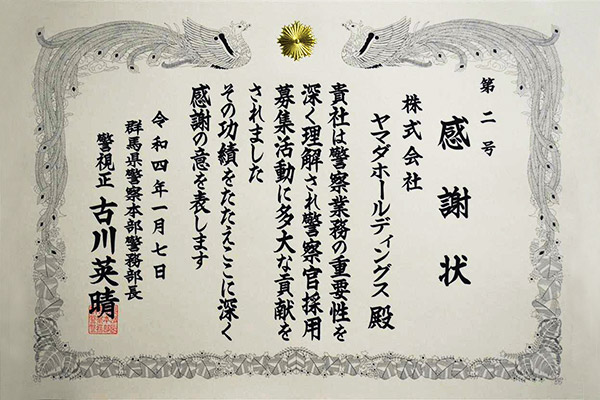 第二号
感謝状
株式会社
ヤマダホールディングス殿
貴社は警察業務の重要性を
深く理解され警察官採用
募集活動に多大な貢献を
されました
その功績をたたえここに深く
感謝の意を表します
令和四年一月七日
群馬県警察本部警務部長
警視正 古川英晴